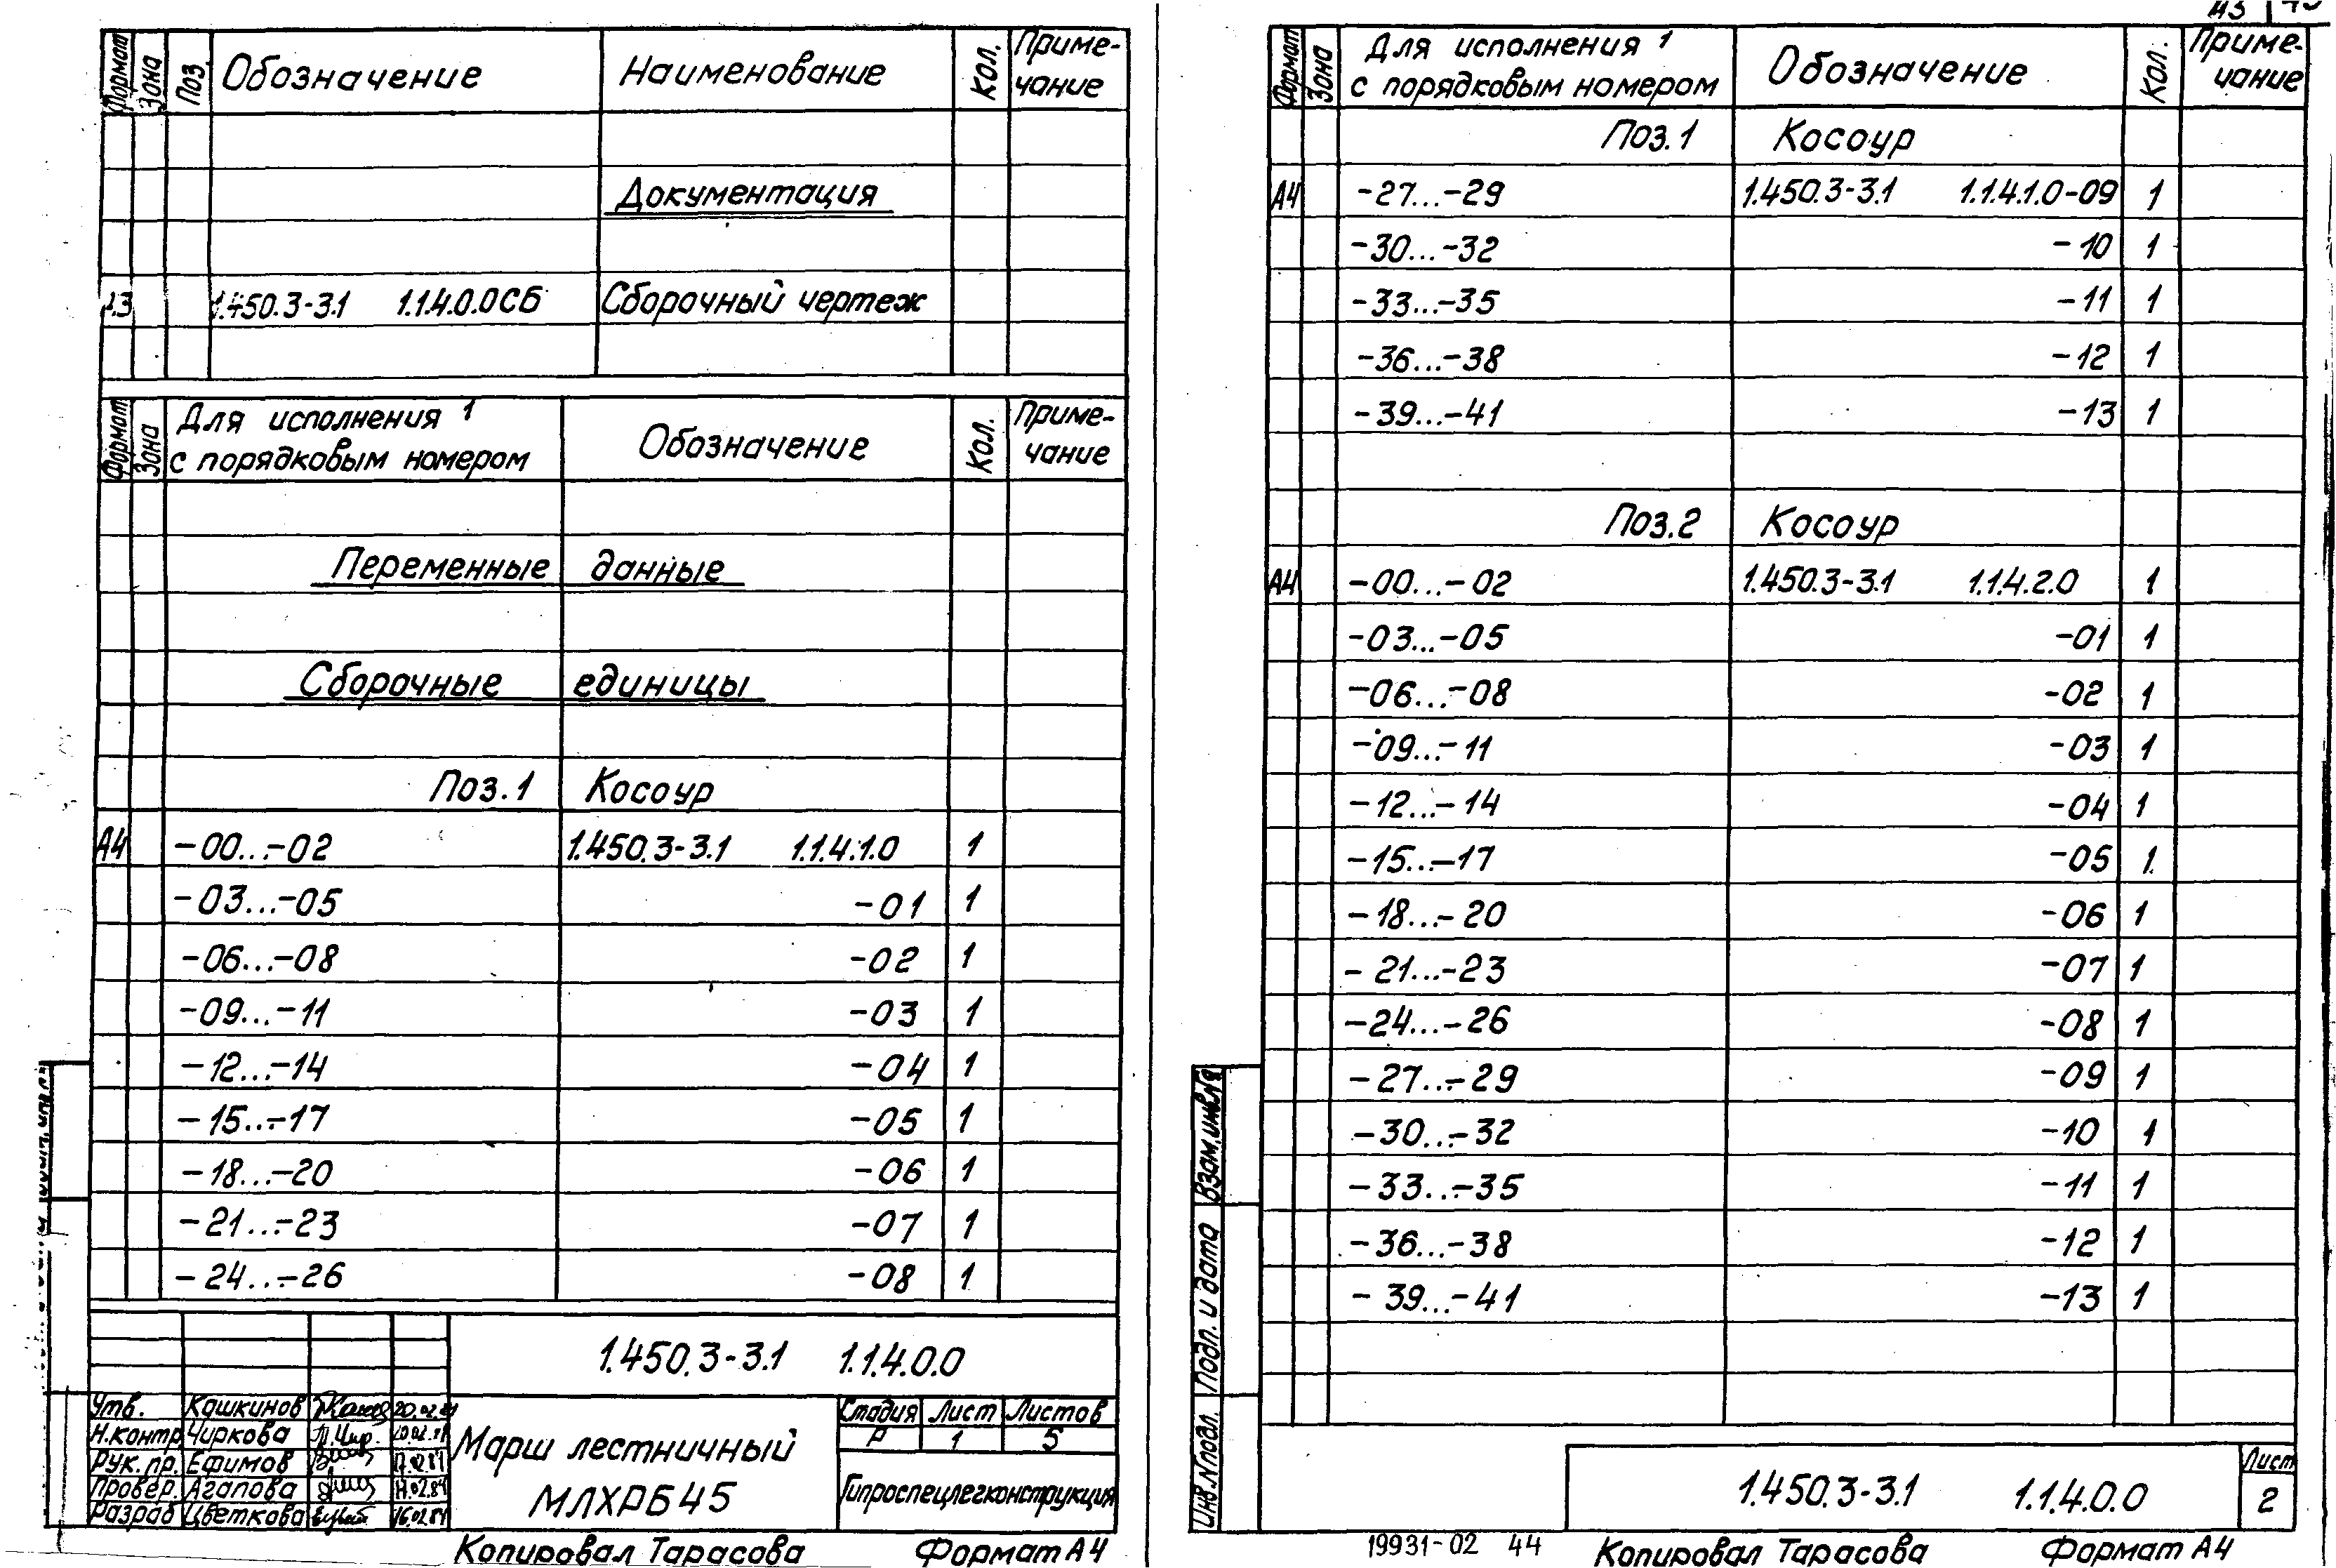 Формат Зона Поз. Обозначение Наименование Кол. Приме-
чание
Документация
1.450.3-3.1 1.1.4.0.0СБ Сборочный чертеж
Формат Зона Для исполнения 1 Обозначение Кол. Приме-
с порядковым номером чание
Переменные данные
Сборочные единицы
Поз.1 Косоур
А4 -00...-02 1.450.3-3.1 1.1.4.1.0 1
-03...-05 -01 1
-06...-08 -02 1
-09...-11 -03 1
-12...-14 -04 1
-15...-17 -05 1
-18...-20 -06 1
-21...-23 -07 1
-24...-26 -08 1
1.450.3-3.1 1.1.4.0.0
Утв. Кашкинов 20.02.84
Н.контр Чиркова
Рук.пр. Ефимов
Провер. Агапова
Разраб Цветкова 16.02.84
Марш лестничный
МЛХРБ45
Стадия Лист Листов
Р 1 5
Гипроспецлегконструкция
Копировал Тарасова Формат А4
Формат Зона Для исполнения 1 Обозначение Кол. Приме-
с порядковым номером чание
Поз.1 Косоур
А4 -27...-29 1.450.3-3.1 1.1.4.1.0-09 1
-30...-32 -10 1
-33...-35 -11 1
-36...-38 -12 1
-39...-41 -13 1
Поз.2 Косоур
А4 -00...-02 1.450.3-3.1 1.1.4.2.0 1
-03...-05 -01 1
-06...-08 -02 1
-09...-11 -03 1
-12...-14 -04 1
-15...-17 -05 1
-18...-20 -06 1
-21...-23 -07 1
-24...-26 -08 1
-27...-29 -09 1
-30...-32 -10 1
-33...-35 -11 1
-36...-38 -12 1
-39...-41 -13 1
Взам.инв.№
Подп. и дата
Инв.№подл.
1.450.3-3.1 1.1.4.0.0
Лист
2
19931-02 44 Копировал Тарасова Формат А4